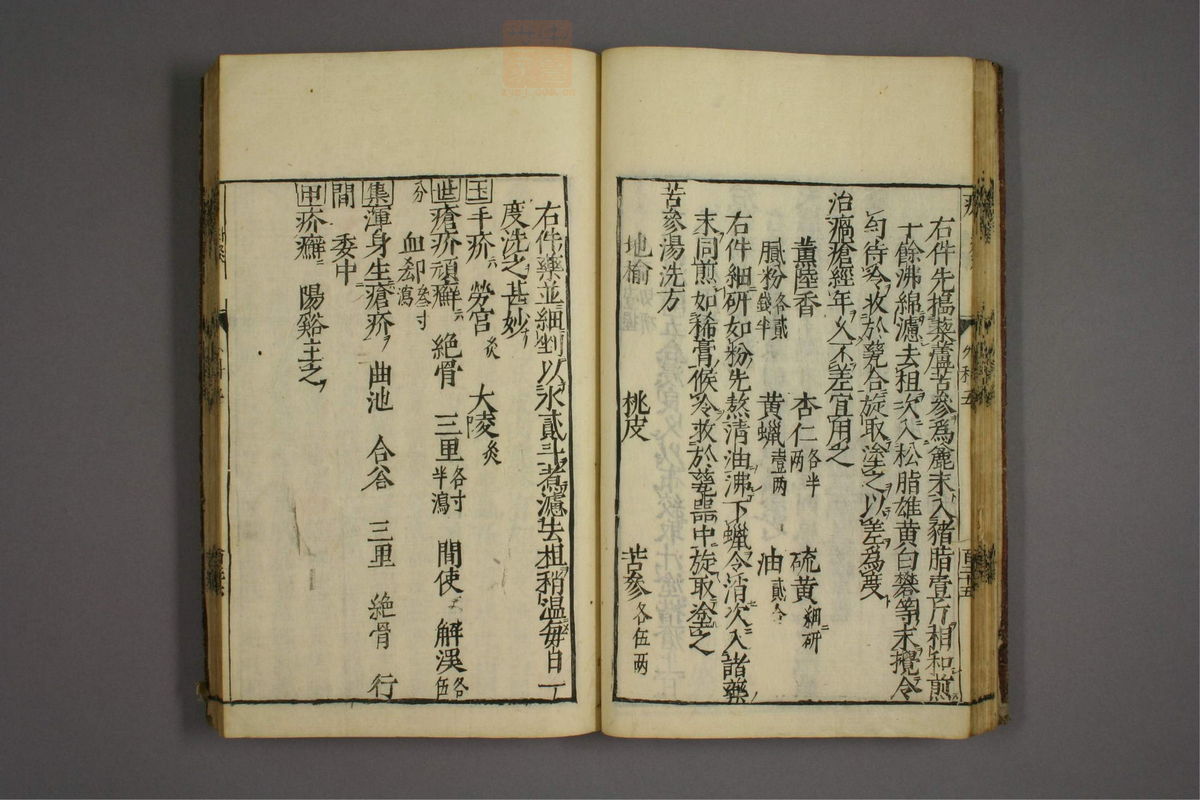 右件先搗藜蘆苦參為麄末入豬脂壹斤相和煎
十餘沸綿濾去柤次入松脂雄黃白礬等末攪令
勻待冷收於甆合旋取塗之以差為度
治瘑瘡經年久不差宜用之
薰陸香 杏仁各半兩 硫黃細研
膩粉各貳錢半 黃蠟壹兩 油貳合
右件細研如粉先熬清油沸下蠟令消次入諸藥
末同煎如稀膏候冷收於甆器中旋取塗之
苦參湯洗方
地榆 桃皮 苦參各伍兩
右件藥並細剉以水貳斗煮濾去柤稍溫每日一
度洗之甚妙
玉手疥 勞宮灸 大陵灸
世瘡疥頑癬 絕骨 三里各寸半瀉 間使 解溪各伍
分 血郄叁寸瀉
集渾身生瘡疥 曲池 合谷 三里 絕骨 行
間 委中
甲疥癬 陽谿主之